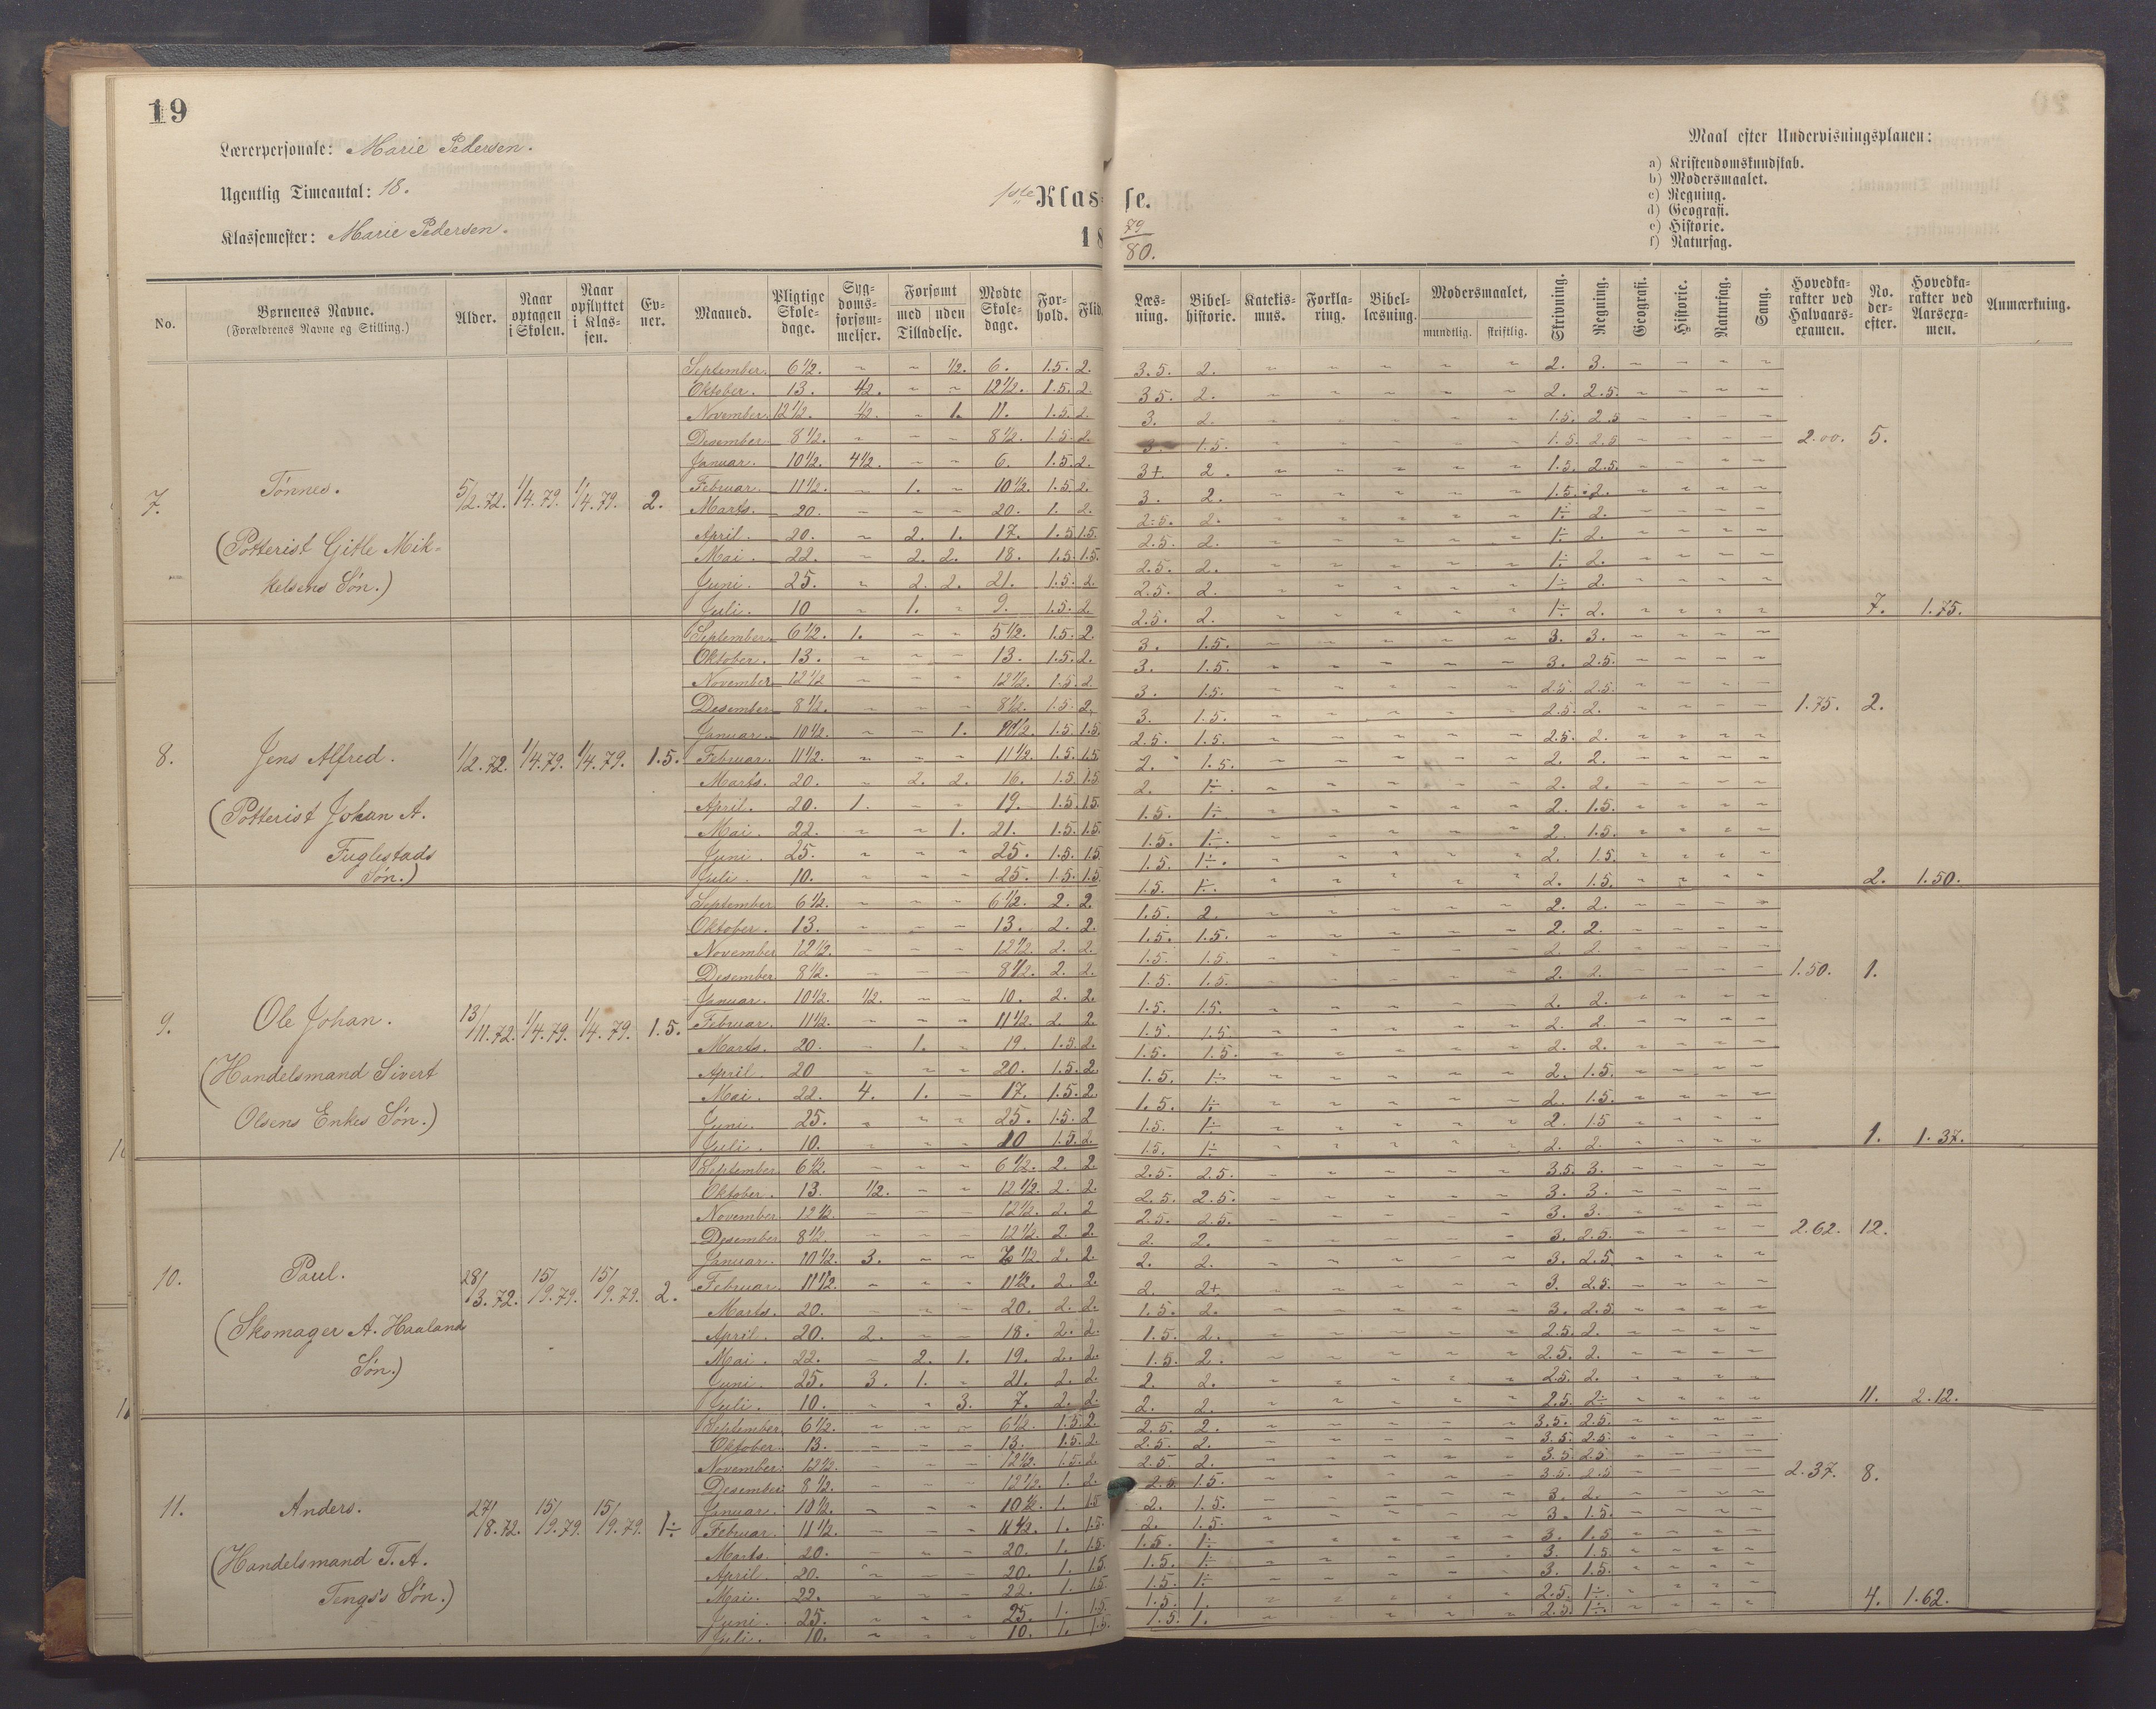 19
Lærerpersonale: Marie Pedersen.
Ugentlig Timeantal: 18.
Klassemester: Marie Pedersen.
1ste Klasse.
1879/80.
Maal efter Undervisningsplanen:
a) Kristendomskundskab.
b) Modersmaalet.
c) Regning.
d) Geografi.
e) Historie.
f) Naturfag.
No. | Børnenes Navne. (Forældrenes Navne og Stilling.) | Alder. | Naar optagen i Skolen. | Naar opflyttet i Klassen. | Evner. | Maaned. | Pligtige Skoledage. | Sygdomsforsømmelser. | Forsømt med / uden Tilladelse. | Mødte Skoledage. | Forhold. | Flid. | Læsning. | Bibelhistorie. | Katekismus. | Forklaring. | Bibellæsning. | Modersmaalet, mundtlig. skriftlig. | Skrivning. | Regning. | Geografi. | Historie. | Naturfag. | Sang. | Hovedkarakter ved Halvaarsexamen. | No. derefter. | Hovedkarakter ved Aarsexamen. | Anmærkning.
7. Tønnes. 5/2.72. 1/4.79. 1/4.79. 2.
(Potterist Gitle Mikkelsens Søn.)
September. 6 1/2. ~ ~ 1/2. 6. 1.5. 2. 3.5. 2. 2. 3.
Oktober. 13. 1/2. ~ ~ 12 1/2. 1.5. 2. 3 5. 2. 2. 2.5.
November. 12 1/2. 1/2. - 1. 11. 1.5. 2. 3. 2. 1.5. 2.5
Desember. 8 1/2. ~ ~ ~ 8 1/2. 1.5. 2. 3. 1.5. 1.5. 2.5 2.00. 5.
Januar. 10 1/2. 4 1/2. ~ ~ 6. 1.5. 2. 3+ 2. 1.5. 2.5.
Februar. 11 1/2. ~ 1. ~ 10 1/2. 1.5. 2. 3. 2. 1.5. 2.
Marts. 20. ~ ~ ~ 20. 1. 2. 2.5. 2. 1÷ 2.
April. 20. ~ 2. 1. 17. 1.5 1.5. 2.5. 2. 1÷ 2.
Mai. 22. ~ 2. 2. 18. 1.5. 1.5. 2.5. 2. 1÷ 2.
Juni. 25. ~ 2. 2. 21. 1.5. 2. 2.5. 2. 1÷ 2.
Juli. 10 ~ 1. ~ 9. 1.5. 2. 2.5. 2. 1÷ 2. 7. 1.75.
8. Jens Alfred. 1/2.72. 1/4.79. 1/4.79. 1.5.
(Potterist Johan A.
Fuglestads
Søn.)
September. 6 1/2. 1. ~ ~ 5 1/2. 1.5. 2. 3. 1.5. 3. 3.
Oktober. 13. ~ ~ ~ 13. 1.5. 2. 3. 1.5. 3. 2.5.
November. 12 1/2 ~ ~ ~ 12 1/2. 1.5. 2. 3. 1.5. 2.5. 2.5.
Desember. 8 1/2. ~ ~ ~ 8 1/2. 1.5. 2. 3. 1.5. 2.5. 2. 1.75. 2.
Januar. 10 1/2. ~ ~ 1. 1.5. 1.5. 2.5. 1.5. 2.5. 2.
Februar. 11 1/2. ~ ~ ~ 11 1/2. 1.5. 1.5 2. 1.5. 2. 2.
Marts. 20. ~ 2. 2. 16. 1.5 1.5 2. 1÷. 2. 2.
April. 20. 1. ~ ~ 19. 1.5. 1.5. 1.5. 1÷ 2. 1.5.
Mai. 22. ~ ~ 1. 21. 1.5. 1.5. 1.5. 1÷. 2. 1.5.
Juni. 25. ~ ~ ~ 25. 1.5. 1.5. 1.5. 1÷. 2. 1.5.
Juli. 10. ~ ~ ~ 25. 1.5. 1.5. 1.5. 1÷. 2. 1.5. 2. 1.50.
9. Ole Johan. 13/11.72. 1/4.79. 1/4.79. 1.5.
(Handelsmand Sivert
Olsens Enkes Søn.)
September 6 1/2. ~ ~ ~ 6 1/2. 2. 2. 1.5. 2. 2. 2.
Oktober. 13. ~ ~ ~ 13. 2. 2. 1.5. 1.5. 2. 2.
November 12 1/2. ~ ~ ~ 12 1/2. 2. 2. 1.5. 1.5. 2. 2.
Desember 8 1/2. ~ ~ ~ 8 1/2. 2. 2. 1.5. 1.5. 2. 2. 1.50. 1.
Januar. 10 1/2. 1/2. ~ ~ 10. 2. 2. 1.5. 1.5. 2. 2.
Februar. 11 1/2. ~ ~ ~ 11 1/2. 2. 2. 1.5. 1.5. 2. 2.
Marts. 20. ~ 1. ~ 19. 1.5. 2. 1.5. 1.5. 2. 2.
April. 20 ~ ~ ~ 20. 1.5. 2. 1.5. 1÷ 2. 1.5.
Mai. 22. 4. 1. ~ 17. 1.5. 2. 1.5. 1÷ 2. 1.5.
Juni. 25. ~ ~ ~ 25. 1.5. 2 1.5. 1÷ 2. 1.5
Juli. 10. ~ ~ ~ 10 1.5. 2. 1.5. 1÷ 2. 2. 1. 1.37.
10. Paul. 28/3.72. 15/9.79. 15/9.79. 2.
(Skomager A. Haalands
Søn.)
September 6 1/2. ~ ~ ~ 6 1/2. 2. 2. 2.5. 2.5. 3.5. 3.
Oktober. 13. 1/2. ~ ~ 12 1/2. 2. 2. 2.5. 2.5. 3. 3.
November 12 1/2. ~ ~ ~ 12 1/2. 2. 2 2.5. 2.5. 3. 3.
Desember 8 1/2. ~ ~ ~ 12 1/2. 2. 2. 2. 2. 3. 2.5. 2.62. 12.
Januar. 10 1/2. 3. ~ ~ 2. 2. 2. 2. 3. 2.5.
Februar. 11 1/2. ~ ~ ~ 11 1/2. 2. 2. 2. 2+ 3. 2.5.
Marts. 20. ~ ~ ~ 20. 2. 2. 1.5. 2. 3. 2.5
April. 20. 2. ~ ~ 18. 2. 2. 1.5. 2. 2.5. 2.
Mai. 22. ~ 2. 1. 19. 2. 2. 1.5. 2. 2.5. 2.
Juni. 25. 3. 1. ~ 21. 2. 2. 2. 2. 2.5. 2.
Juli. 10. ~ ~ 3. 7. 2. 2. 2. 2. 2.5. 2÷ 11. 2.12.
11. Anders. 27/8.72. 15/9.79. 15/9.79. 1÷
(Handelsmand T. A.
Tengs's Søn.)
September. 6 1/2. ~ ~ ~ 6 1/2. 1.5. 2. 2.5. 2. 3.5. 2.5.
Oktober. 13. ~ ~ ~ 13. 1.5. 2. 2.5. 2. 3.5. 2.5.
November. 12 1/2. ~ ~ ~ 12 1/2. 1.5. 2. 2.5. 2. 3.5 2.5
Desember. 8 1/2. ~ ~ ~ 12 1/2. 1. 2. 2.5. 1.5. 3.5. 2.5 2.37. 8.
Januar. 10 1/2. ~ ~ ~ 10 1/2. 1. 1.5 2. 1.5. 3. 2.
Februar. 11 1/2. ~ ~ ~ 11 1/2. 1. 1.5. 2. 1.5. 3. 1.5.
Marts. 20. ~ ~ ~ 20. 1. 1.5. 1.5. 1÷ 3. 1.5
April. 20. ~ ~ ~ 20. 1. 1.5. 1.5. 1÷ 3. 1.5.
Mai. 22. ~ ~ ~ 22. 1. 1.5 1.5. 1÷ 3. 1.5.
Juni. 25. ~ ~ ~ 25. 1. 1.5. 1.5. 1. 2.5. 1÷
Juli. 10. ~ ~ ~ 10. 1. 1.5. 1.5. 1. 2.5. 1÷. 4. 1.62.